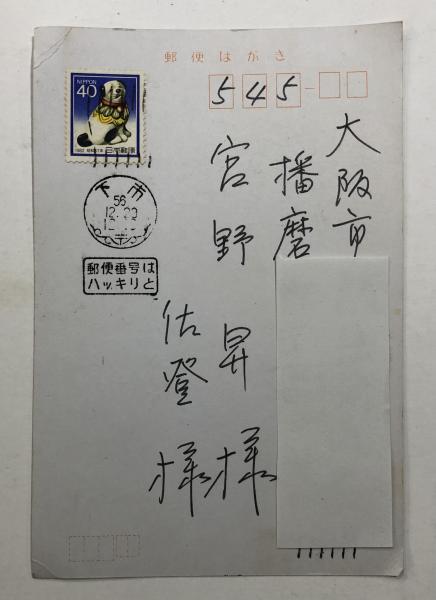 郵便はがき
NIPPON
40
1982 昭和57年 日本郵便
545
下市
56
12.29
郵便番号は
ハッキリと
大阪市
播磨
宮野 昇様
佐登様